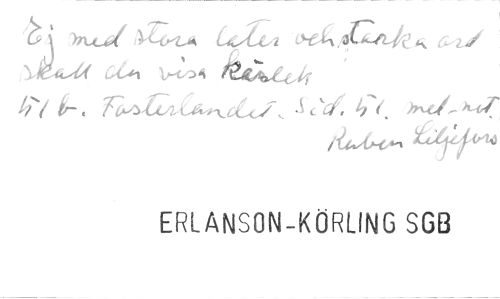 Ej med stora later och starka ord
skall du visa kärlek
51 b. Fosterlandet. Sid. 51. mel-not.
Ruben Liljefors
ERLANSON-KÖRLING SGB